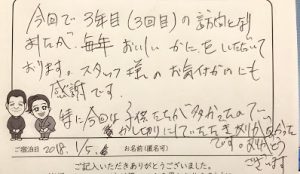 今回で3年目(3回目)の訪問となり
ましたが、毎年おいしいかにをいただいて
おります。スタッフ様のお気付かいにも
感謝です。
特に今回は子供たちが多かったので
貸し切りにていただきありがたかった
です。ありがとう
ございます
ご宿泊日 2018. 1/5.
お名前(匿名可)
ご記入いただきありがとうございました。